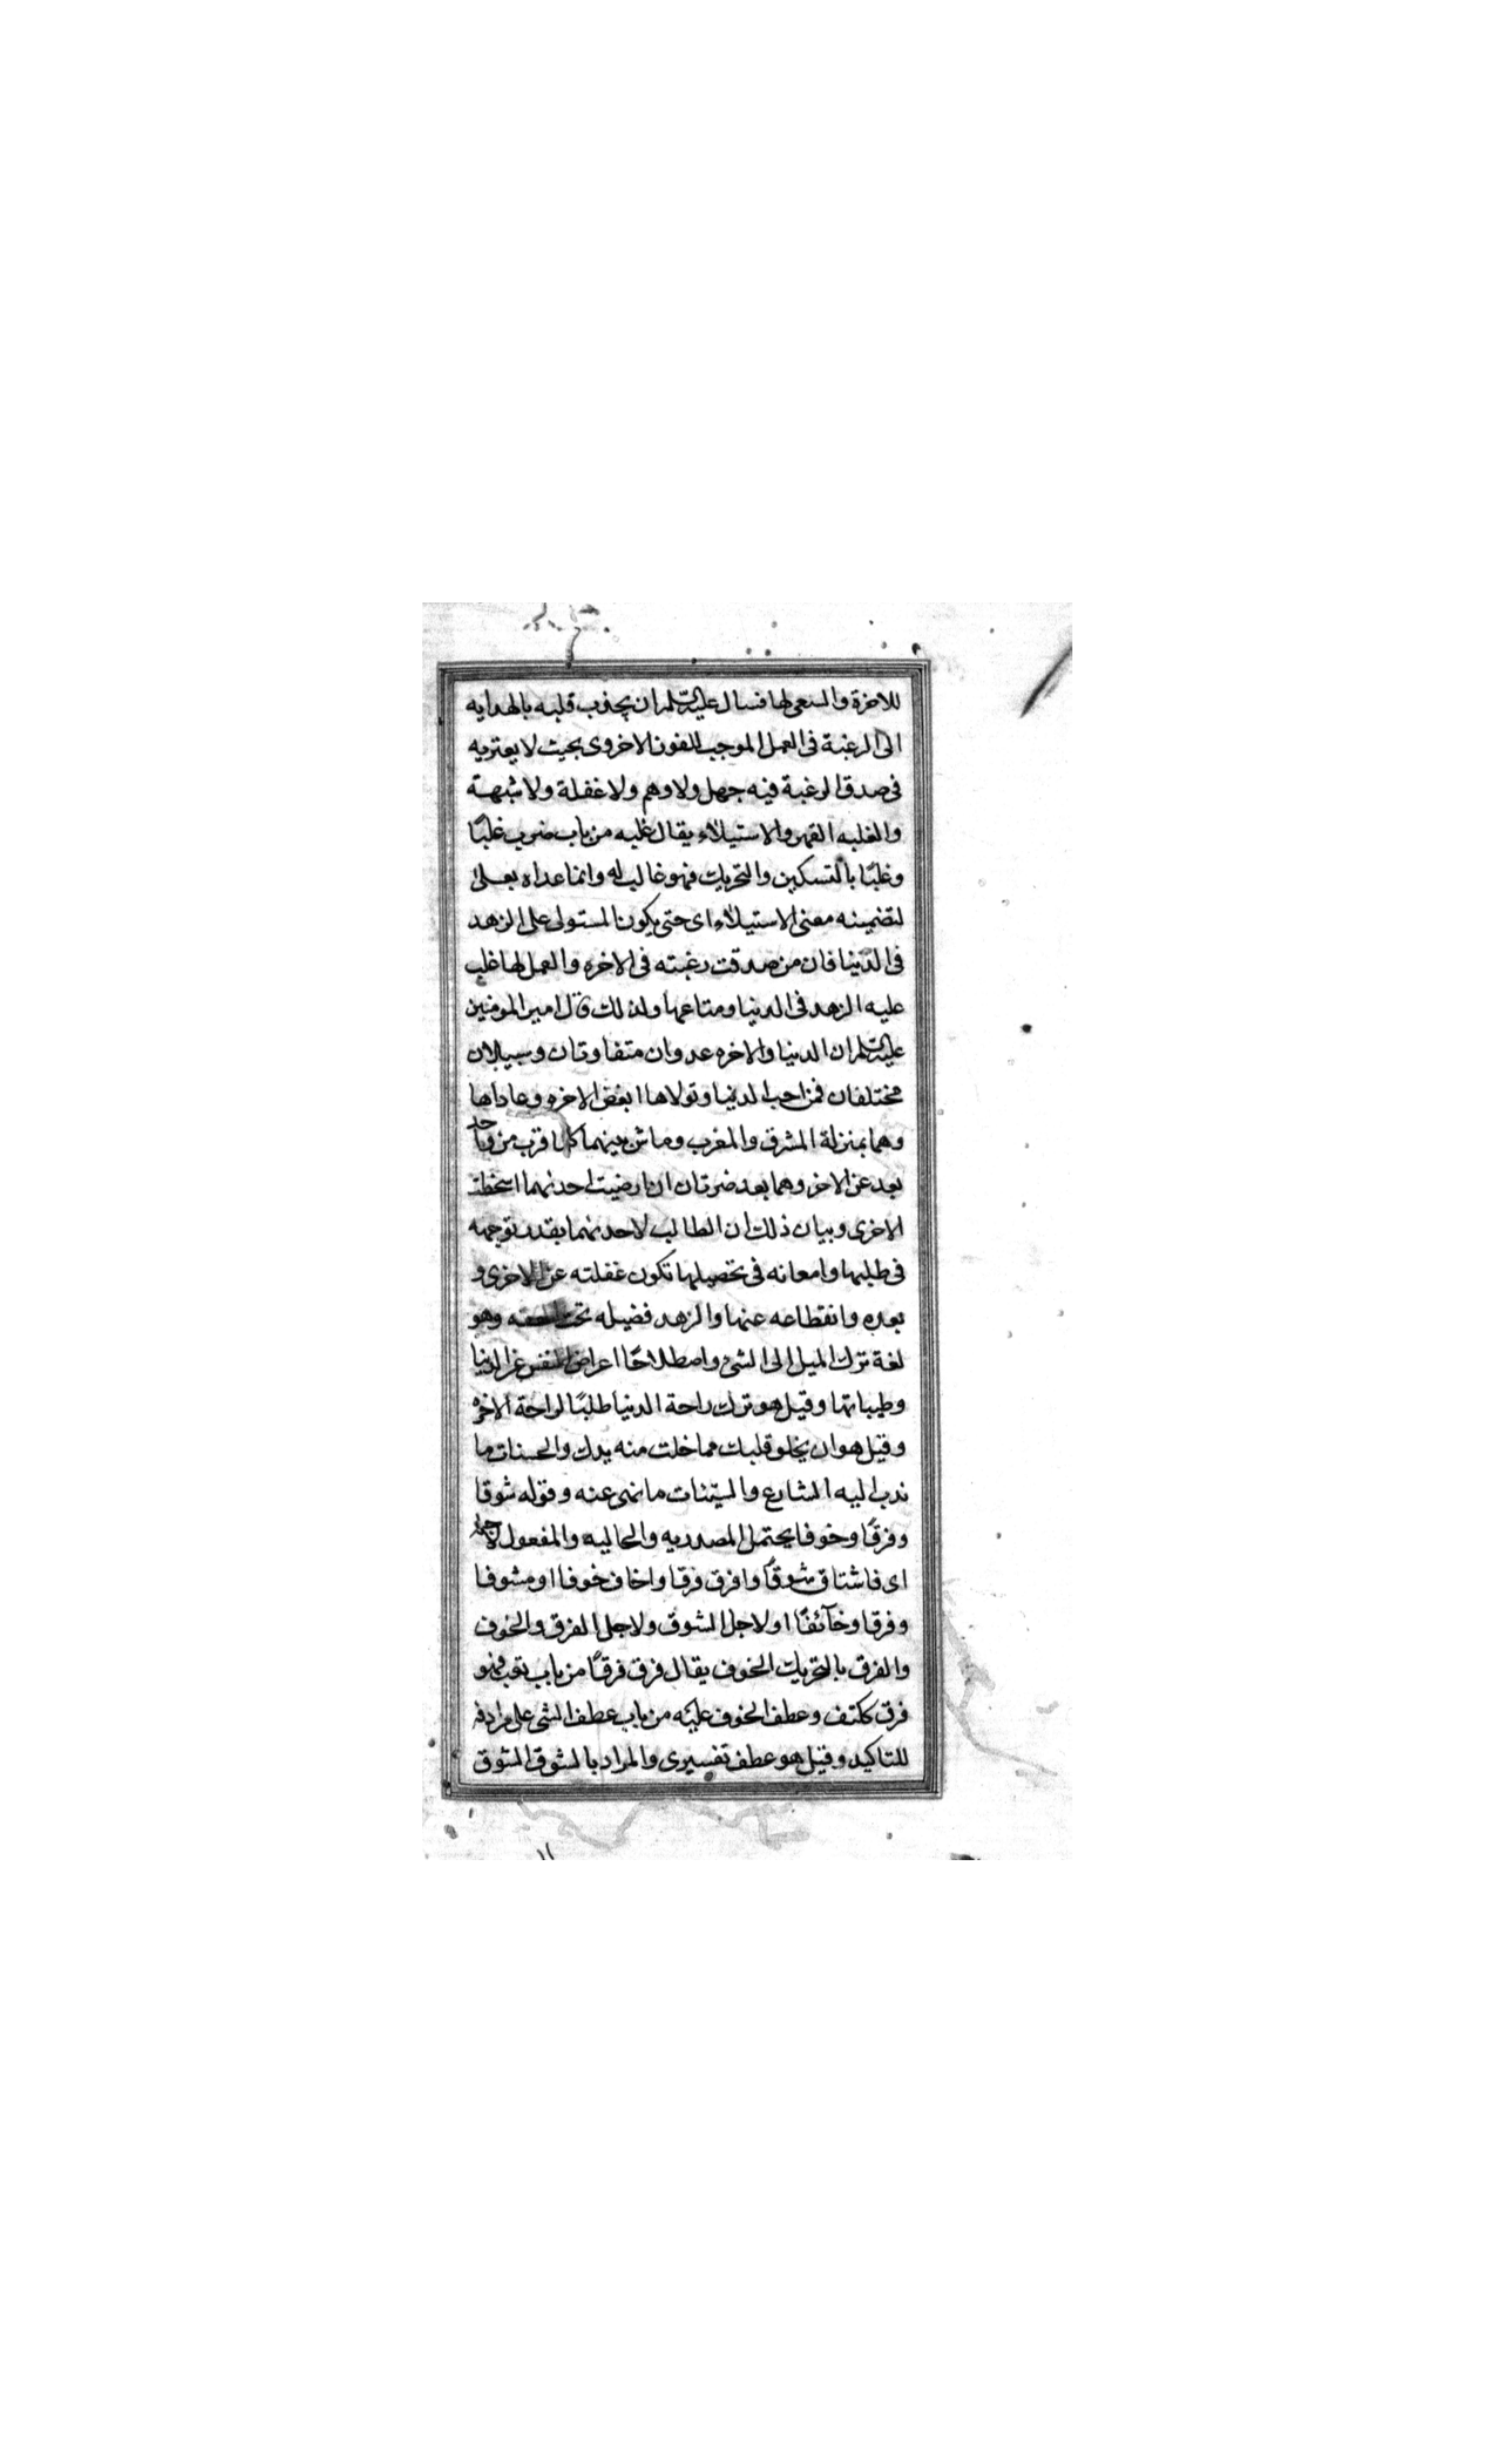 للاخرة والسعى لها فسال عليه السلم ان يجذب قلبه بالهدايه
الى الرغبة فى العمل الموجب للفوز الاخروى بحيث لا يعتريه
فى صدق الرغبة فيه جهل ولا وهم ولا غفلة ولا شبهة
والغلبه القهر والاستيلاء يقال غلبه من باب ضرب غلبًا
وغلبًا بالتسكين والتحريك فهو غالب له وانما عداه بعلى
لتضمينه معنى الاستيلاء اى حتى يكون المستولى على الزهد
فى الدّنيا فان من صدقت رغبته فى الاخره والعمل لها غلب
عليه الزهد فى الدنيا ومتاعها ولذلك قال امير المومنين
عليه السلم ان الدنيا والاخره عدوان متفاوتان وسبيلان
مختلفان فمن احب الدنيا وتولاها ابغض الاخره وعاداها
وهما بمنزلة المشرق والمغرب وماش بينهما كلما قرب من واحد
بعد عن الاخر وهما بعد ضرتان ان ارضيت احدنهما اسخطت
الاخرى وبيان ذلك ان الطالب لاحدنهما بقدر توجهه
فى طلبها وامعانه فى تحصيلها تكون غفلته عن الاخرى و
بعده وانقطاعه عنها والزهد فضيله تحت العفه وهو
لغة ترك الميل الى الشئ واصطلاحًا اعراض النفس عن الدنيا
وطيباتها وقيل هو ترك راحة الدنيا طلبًا لراحة الاخره
وقيل هو ان يخلو قلبك مما خلت منه يدك والحسنات ما
ندب اليه الشارع والسيّئات ما نهى عنه وقوله شوقا
وفرقًا وخوفا يحتمل المصدريه والحاليه والمفعول لاجله
اى فاشتاق شوقًا وافرق فرقا واخاف خوفا او مشوقا
وفرقا وخآئفًا او لاجل الشوق ولاجل الفرق والخوف
والفرق بالتحريك الخوف يقال فرق فرقًا من باب تعب فهو
فرق ككتف وعطف الخوف عليه من باب عطف الشى على مرادفه
للتاكيد وقيل هو عطف تفسيرى والمراد بالشوق الشوق